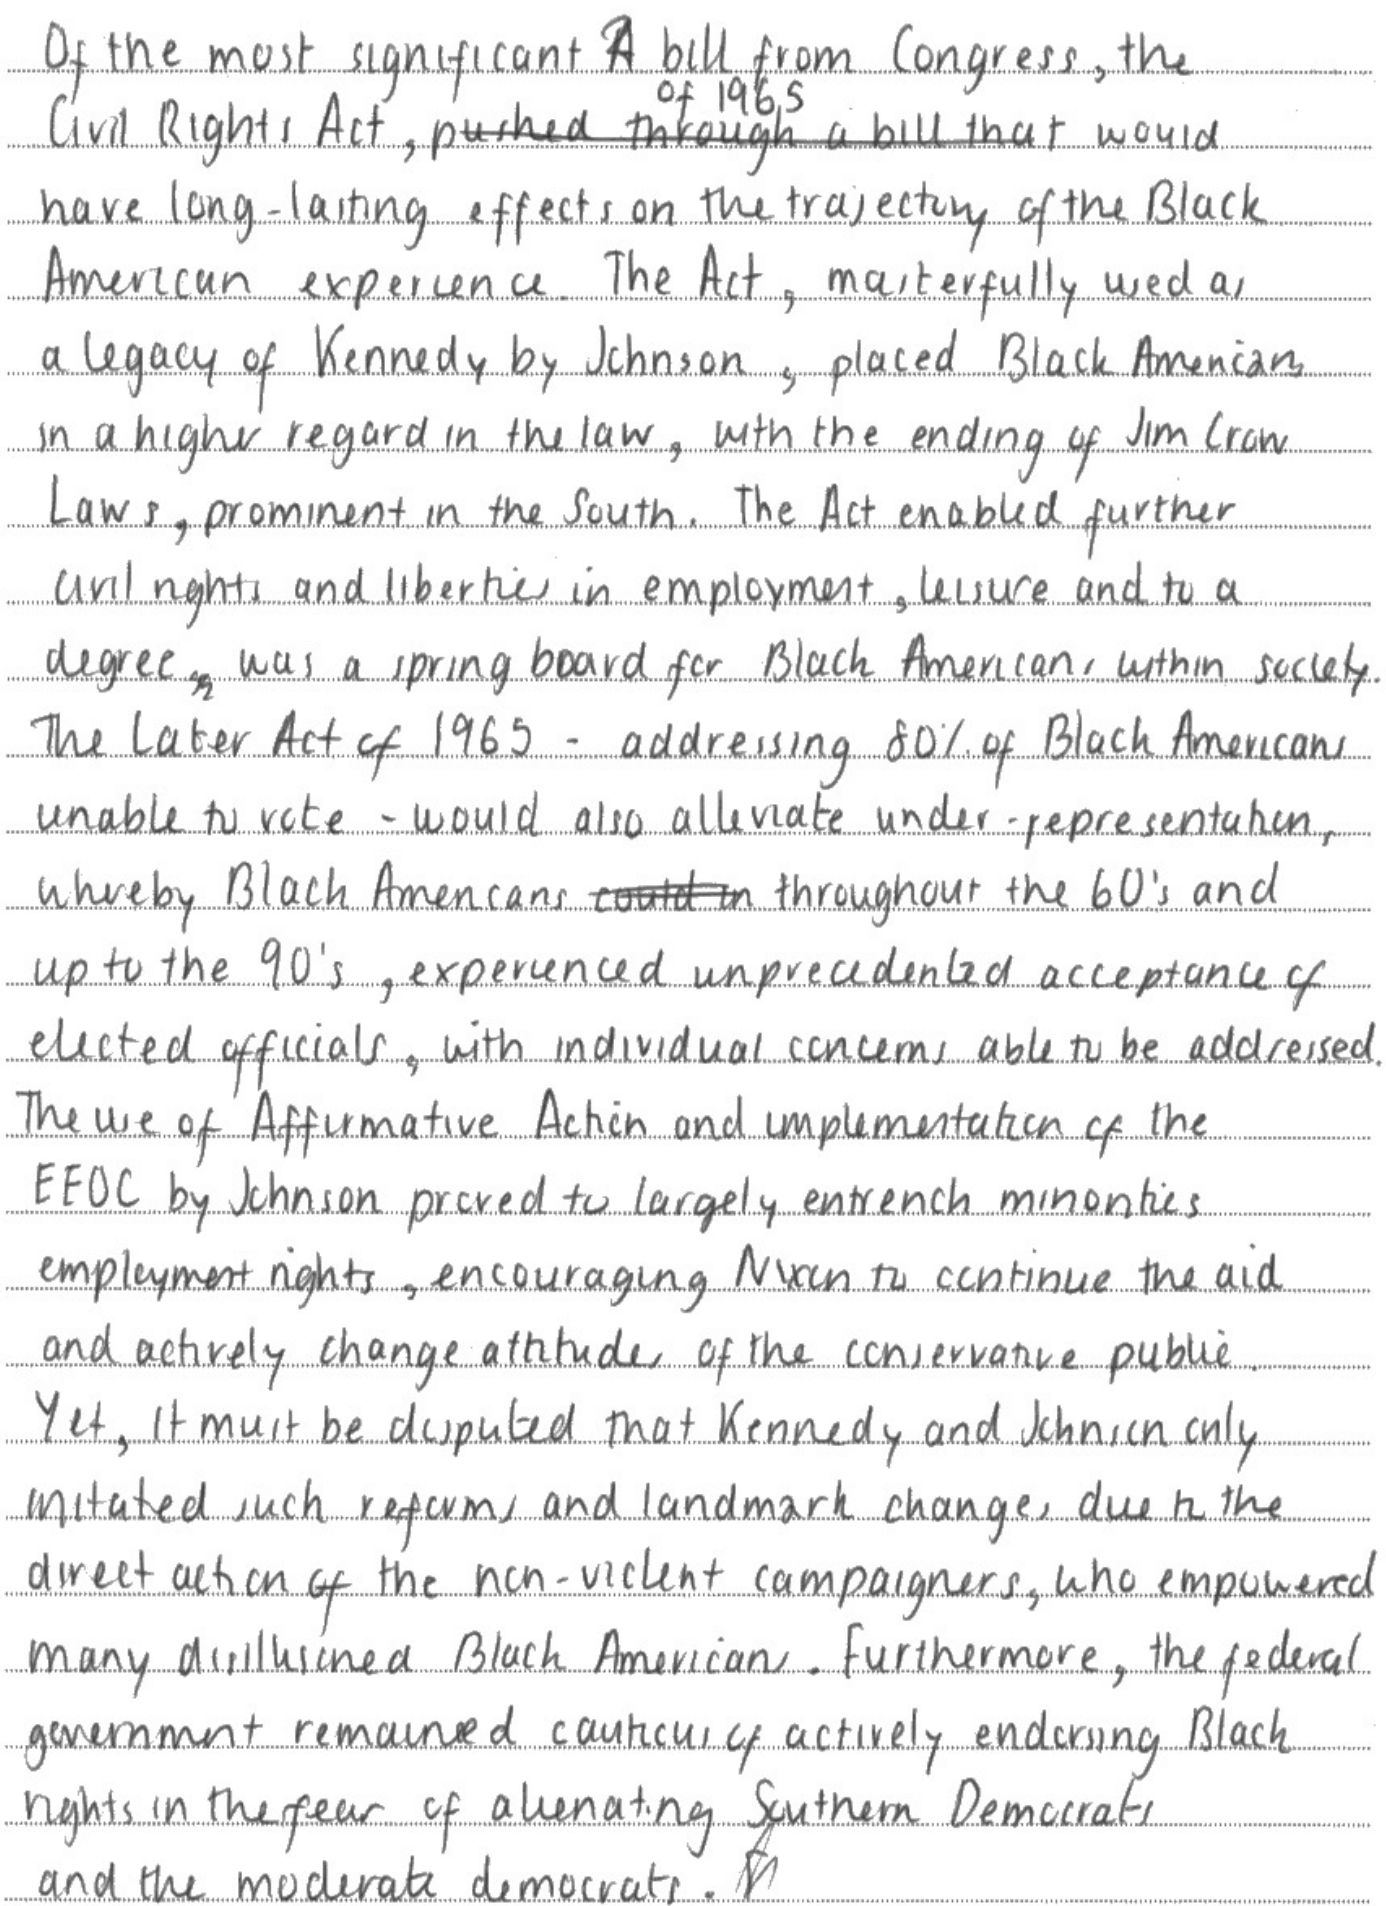 Of the most significant A bill from Congress, the
of 1965
Civil Rights Act, pushed through a bill that would
have long-lasting effects on the trajectory of the Black
American experience. The Act, masterfully used as
a legacy of Kennedy by Johnson, placed Black Americans
in a higher regard in the law, with the ending of Jim Crow
Laws, prominent in the South. The Act enabled further
civil rights and liberties in employment, leisure and to a
degree, was a spring board for Black Americans within society.
The Later Act of 1965 - addressing 80% of Black Americans
unable to vote - would also alleviate under-representation,
whereby Black Americans could in throughout the 60's and
up to the 90's, experienced unprecedented acceptance of
elected officials, with individual concerns able to be addressed.
The use of Affirmative Action and implementation of the
EEOC by Johnson proved to largely entrench minorities
employment rights, encouraging Nixon to continue the aid
and actively change attitudes of the conservative public.
Yet, it must be disputed that Kennedy and Johnson only
initated such reforms and landmark changes due to the
direct action of the non-violent campaigners, who empowered
many disillusioned Black Americans. Furthermore, the federal
government remained cautious of actively endorsing Black
rights in the fear of alienating Southern Democrats
and the moderate democrats.